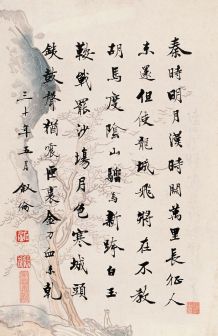 秦時明月漢時關萬里長征人
未還但使龍城飛將在不教
胡馬度陰山騮馬新跨白玉
鞍戰罷沙場月色寒城頭
鐵鼓聲猶震匣裏金刀血未乾
三十年五月